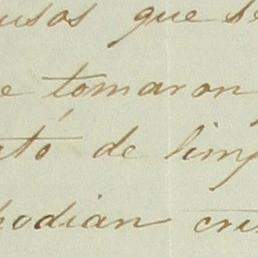 usos que se
e tomaron
ató de limp
podian cru